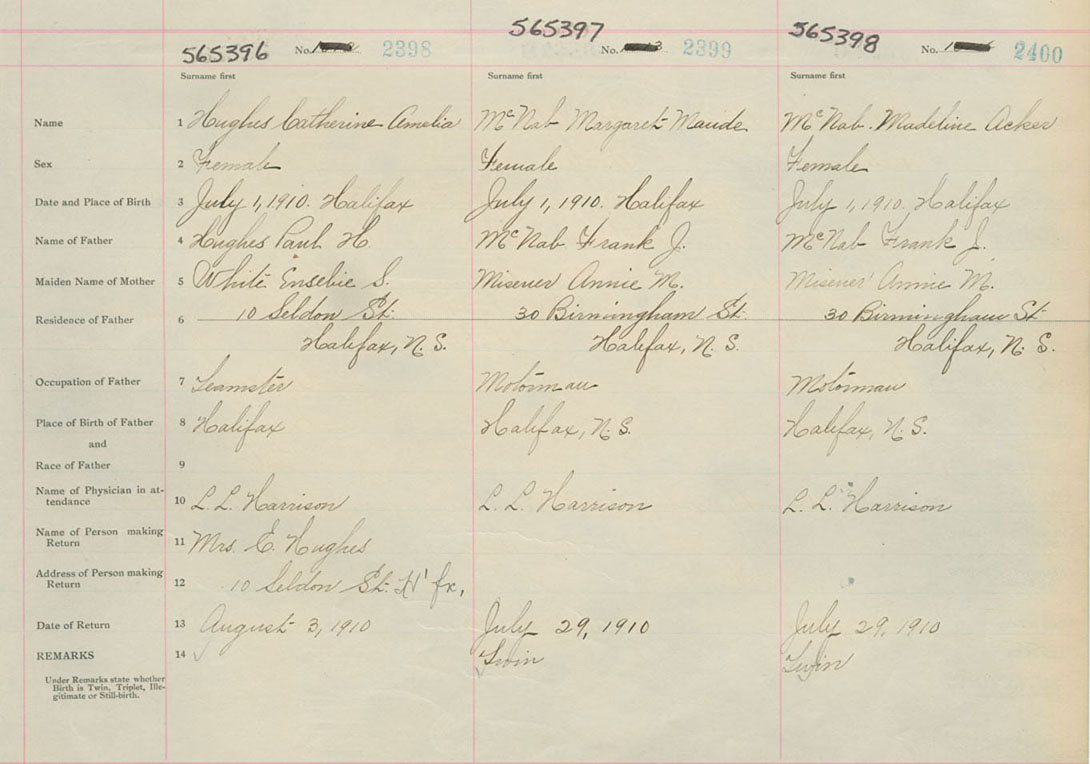 565396 No. 2398 565397 No. 2399 565398 No. 2400
Surname first Surname first Surname first
Name 1 Hughes Catherine Amelia McNab Margaret Maude McNab. Madeline Acker
Sex 2 Female Female Female
Date and Place of Birth 3 July 1, 1910. Halifax July 1, 1910. Halifax July 1, 1910. Halifax
Name of Father 4 Hughes Paul H. McNab. Frank J. McNab Frank J.
Maiden Name of Mother 5 White Ensebie S. Misener Annie M. Misener Annie M.
Residence of Father 6 10 Seldon St. 30 Birmingham St. 30 Birmingham St
Halifax, N.S. Halifax, N.S. Halifax, N.S.
Occupation of Father 7 Teamster Motorman Motorman
Place of Birth of Father 8 Halifax Halifax, N.S. Halifax, N.S.
and
Race of Father 9
Name of Physician in at-
tendance 10 L. L. Harrison L. L. Harrison L. L. Harrison
Name of Person making
Return 11 Mrs. E. Hughes
Address of Person making
Return 12 10 Seldon St. H'fx,
Date of Return 13 August 3, 1910 July 29, 1910 July 29, 1910
REMARKS 14 Twin Twin
Under Remarks state whether
Birth is Twin, Triplet, Ille-
gitimate or Still-birth.